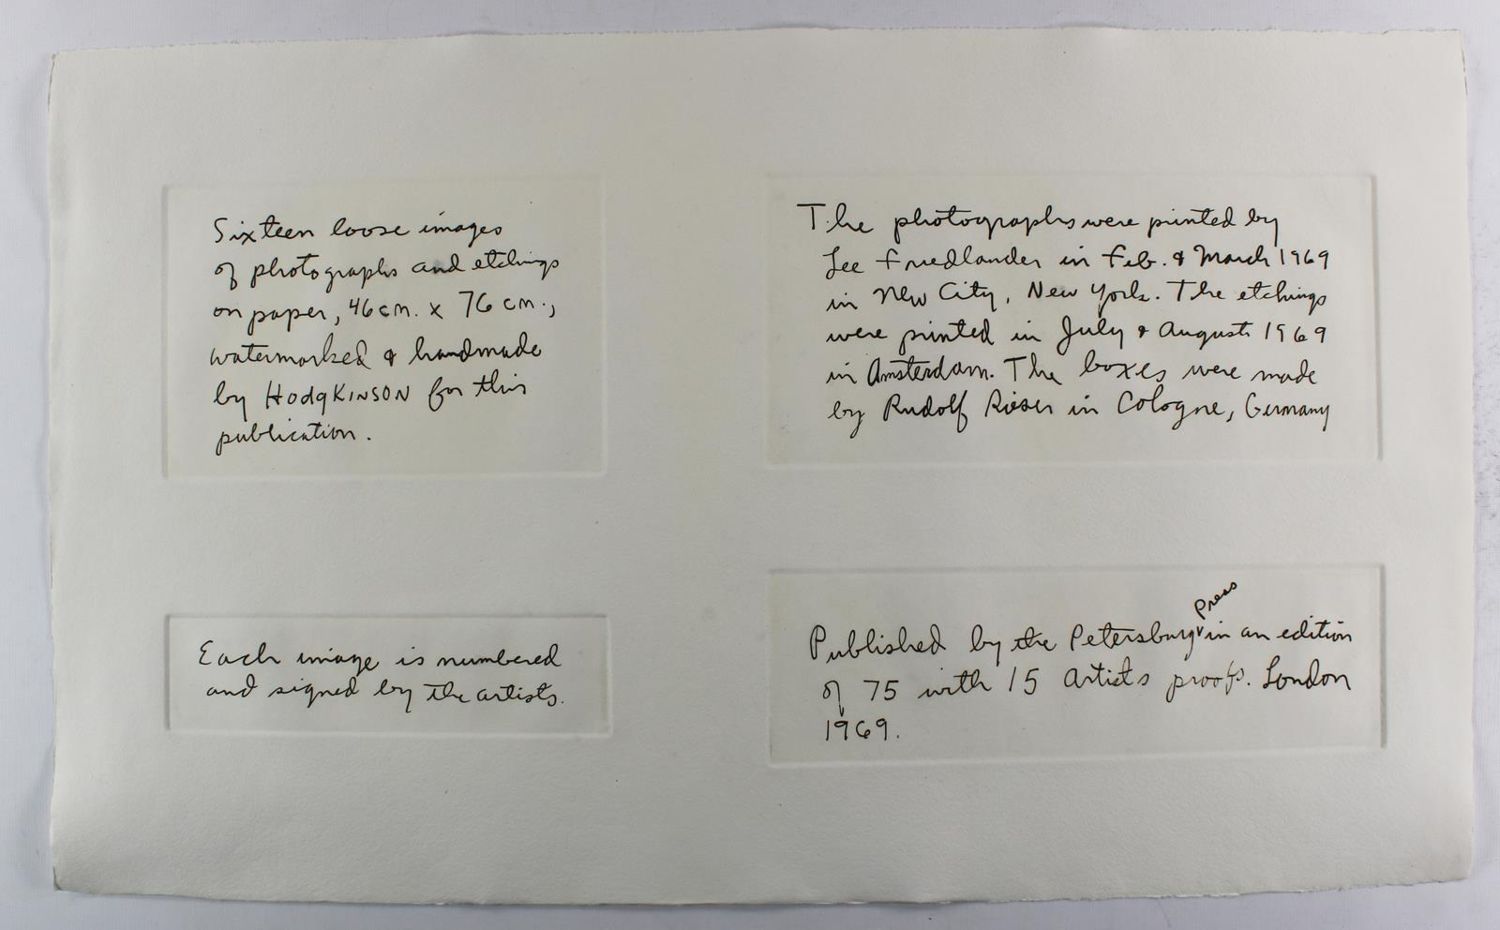 Sixteen loose images
of photographs and etchings
on paper, 46 cm. x 76 cm.,
watermarked & handmade
by HodgKINSON for this
publication.
The photographs were printed by
Lee Friedlander in Feb. & March 1969
in New City, New York. The etchings
were printed in July & August 1969
in Amsterdam. The boxes were made
by Rudolf Rieser in Cologne, Germany
Each image is numbered
and signed by the artists.
Press
Published by the Petersburg in an edition
of 75 with 15 Artists proofs. London
1969.